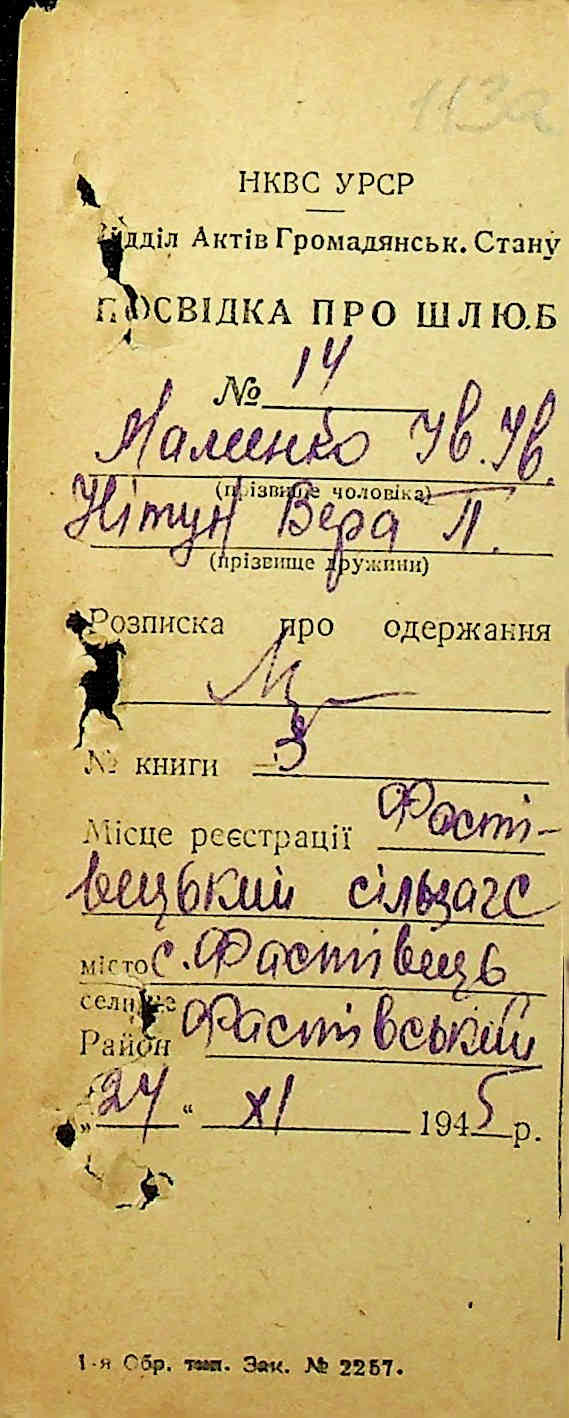 113а
НКВС УРСР
Відділ Актів Громадянськ. Стану
ПОСВІДКА ПРО ШЛЮБ
№ 14
Ів. Ів.
(прізвище чоловіка)
Нітун Вера П.
(прізвище дружини)
Розписка про одержання
№ книги 3
Місце реєстрації Фасті-
вецький сільзагс
місто с. Фастівець
селище
Район Фастівський
„24“ XI 1945 р.
1-я Обр. тип. Зак. № 2257.